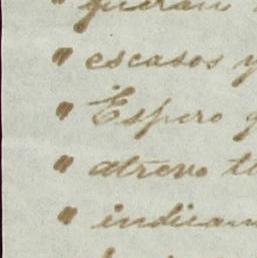 " fueran
" escasos y
" Espero q
" atrevo te
" indican